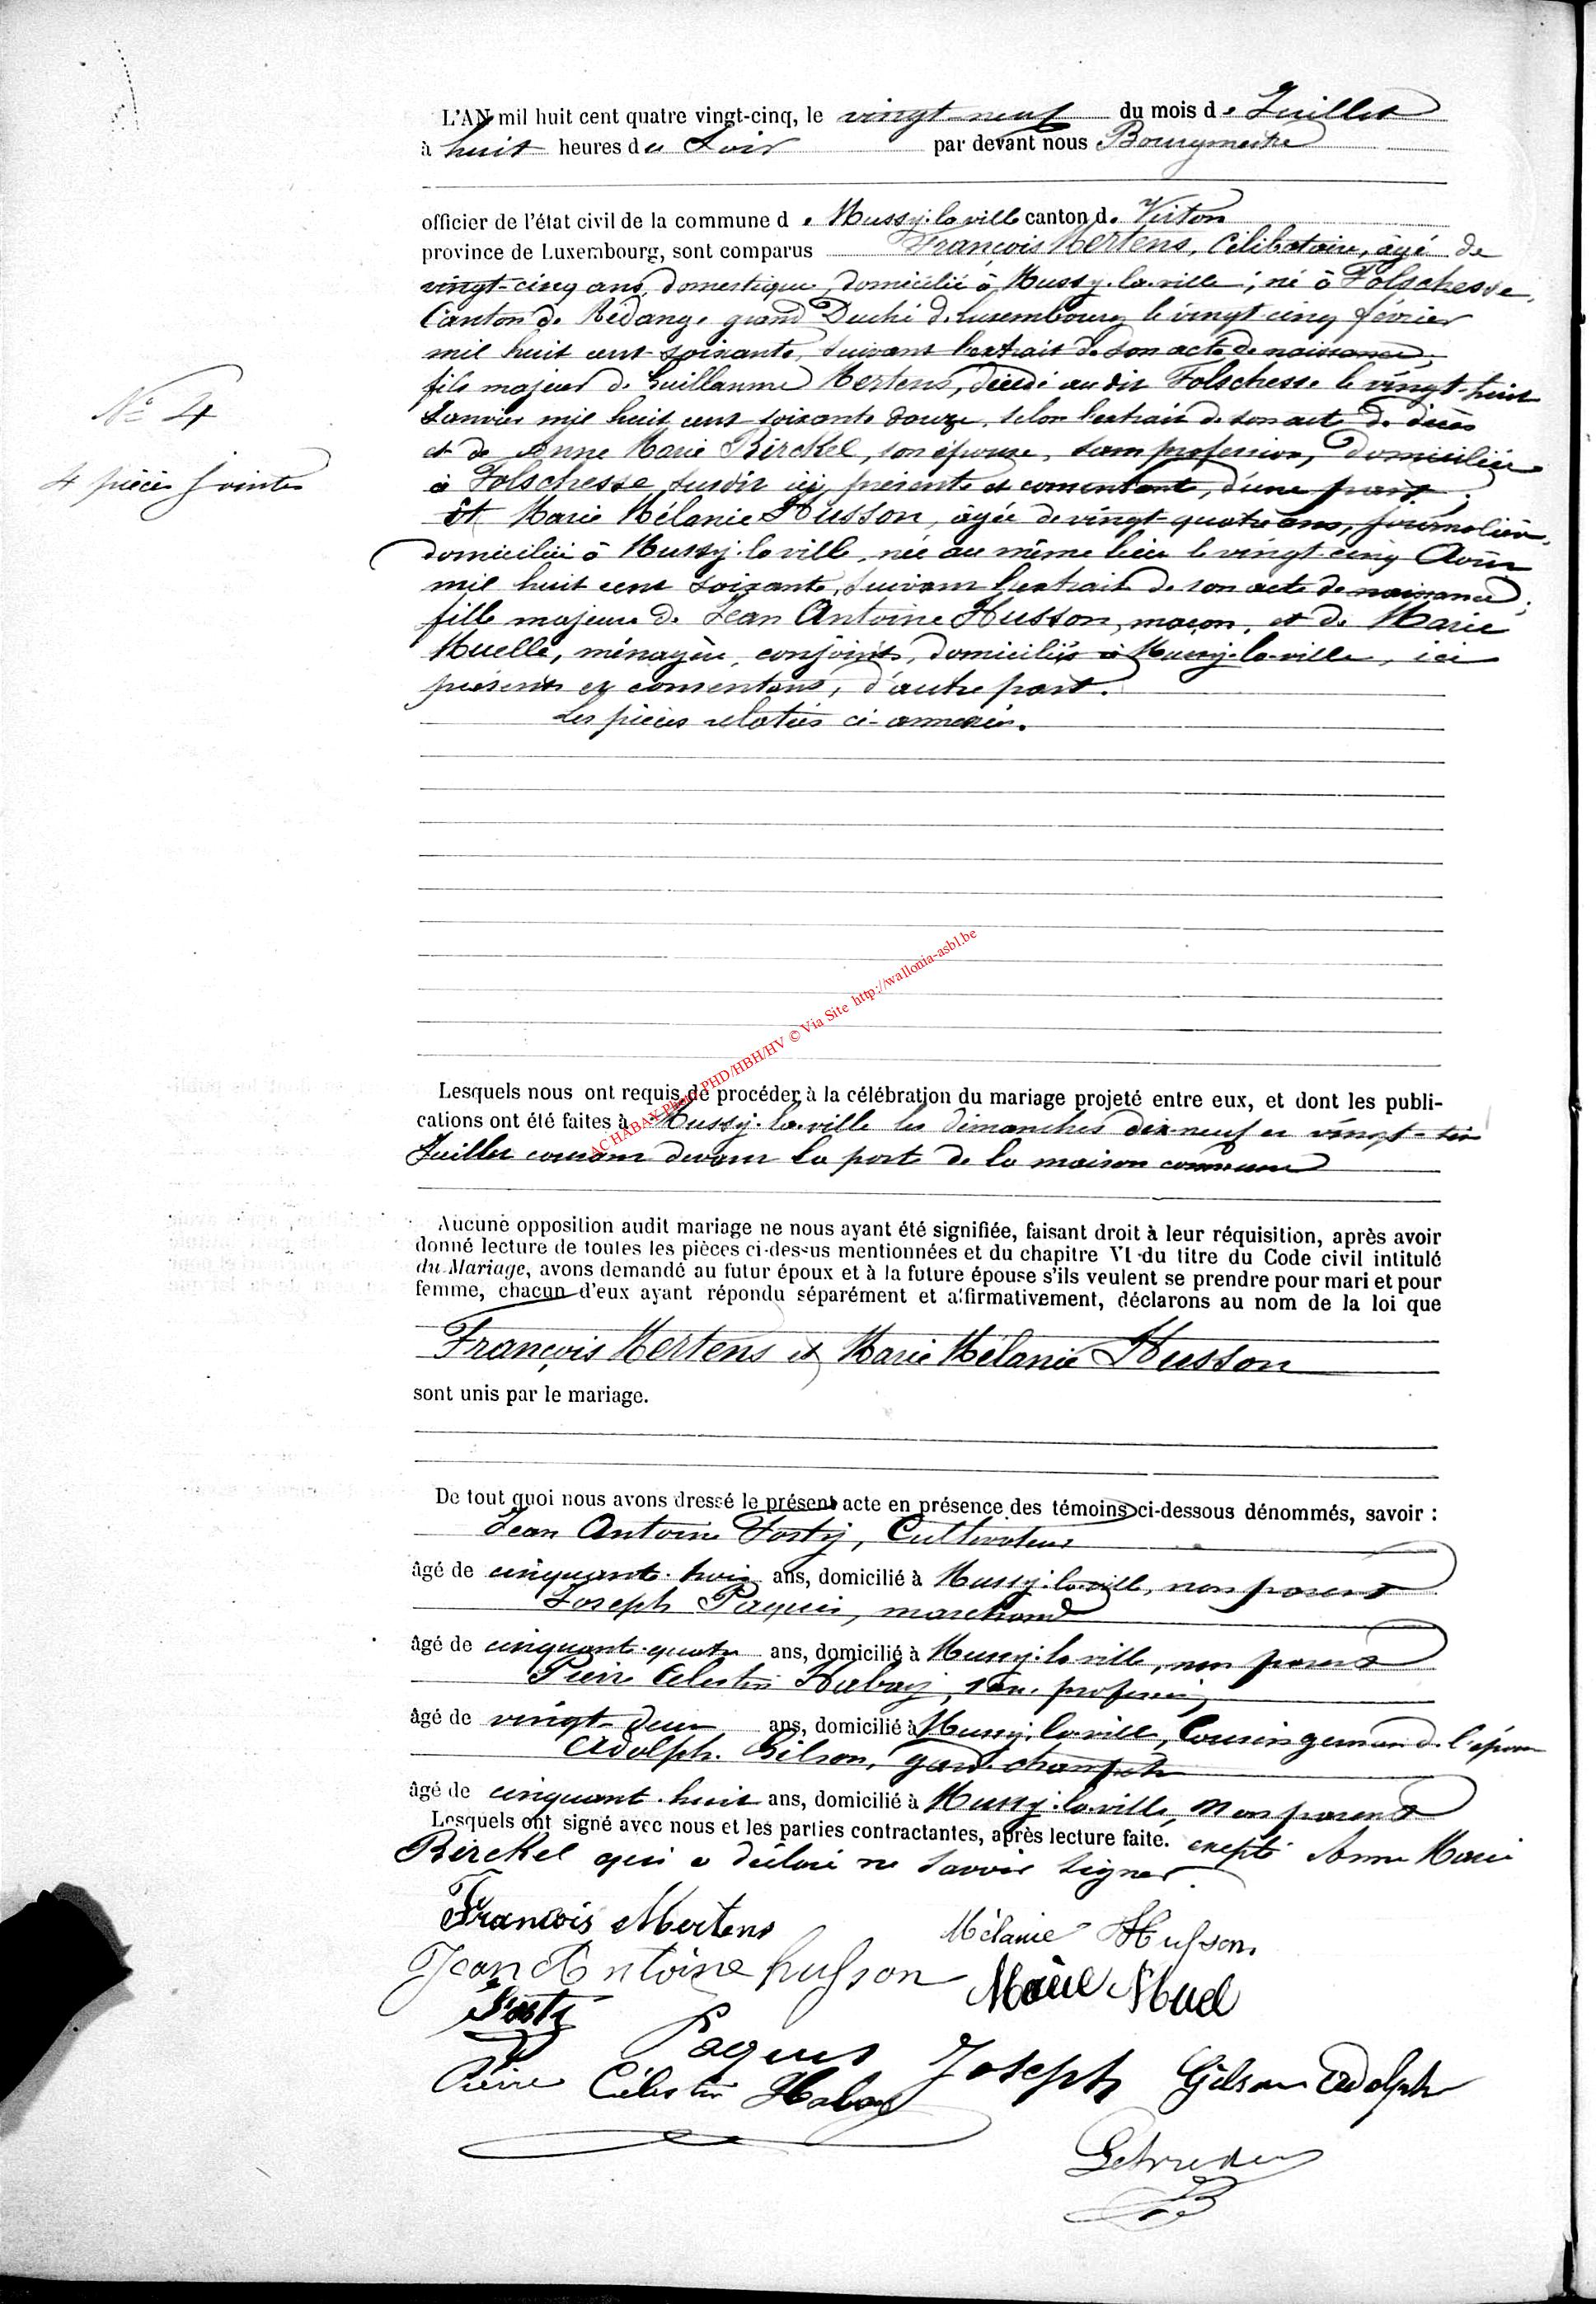 L'AN mil huit cent quatre vingt-cinq, le vingt-neuf du mois de Juillet
à huit heures du Soir par devant nous Bourgmestre
officier de l'état civil de la commune de Mussy-la-ville canton de Virton
province de Luxembourg, sont comparus François Mertens, Célibataire, âgé de
vingt-cinq ans, domestique, domicilié à Mussy-la-ville, né à Folschesse,
Canton de Rédange grand Duché de Luxembourg le vingt cinq février
mil huit cent soixante, suivant l'extrait de son acte de naissance,
fils majeur de Guillaume Mertens, décédé au dit Folschesse le vingt-huit
Janvier mil huit cent soixante douze, selon l'extrait de son acte de décès
et de Anne Marie Birckel, son épouse, sans profession, domiciliée
N° 4
à Folschesse susdit ici présente et consentante, d'une part;
4 pièces jointes
Et Marie Mélanie Husson, âgée de vingt-quatre ans, journalière,
domiciliée à Mussy-la-ville, née au même lieu le vingt-cinq Août
mil huit cent soixante, suivant l'extrait de son acte de naissance;
fille majeure de Jean Antoine Husson, maçon, et de Marie
Muelle, ménagère, conjoints, domiciliés à Mussy-la-ville, ici
présents et consentans, d'autre part.
Les pièces relatées ci-annexées.
AC HABAY Photo PHD/HBH/HV © Via Site http://wallonia-asbl.be
Lesquels nous ont requis de procéder à la célébration du mariage projeté entre eux, et dont les publi-
cations ont été faites à Mussy-la-ville les dimanches dix-neuf et vingt-six
Juillet courant devant la porte de la maison commune
Aucune opposition audit mariage ne nous ayant été signifiée, faisant droit à leur réquisition, après avoir
donné lecture de toutes les pièces ci-dessus mentionnées et du chapitre VI du titre du Code civil intitulé
du Mariage, avons demandé au futur époux et à la future épouse s'ils veulent se prendre pour mari et pour
femme, chacun d'eux ayant répondu séparément et affirmativement, déclarons au nom de la loi que
François Mertens et Marie Mélanie Husson
sont unis par le mariage.
De tout quoi nous avons dressé le présent acte en présence des témoins ci-dessous dénommés, savoir :
Jean Antoine Fosty, Cultivateur
âgé de cinquante-trois ans, domicilié à Mussy-la-ville, non parent
Joseph Paquis, marchand
âgé de cinquante-quatre ans, domicilié à Mussy-la-ville, non parent
Pierre Célestin Habay, sans profession,
âgé de vingt-deux ans, domicilié à Mussy-la-ville, Cousin germain de l'épouse
Adolphe Gilson, garde champêtre
âgé de cinquante-huit ans, domicilié à Mussy-la-ville, Non parent
Lesquels ont signé avec nous et les parties contractantes, après lecture faite. excepté Anne Marie
Birckel qui a déclaré ne savoir signer.
François Mertens Mélanie Husson
Jean Antoine husson Marie Muel
Fosty
Paquis Joseph Gilson Adolphe
Pierre Célestin Habay